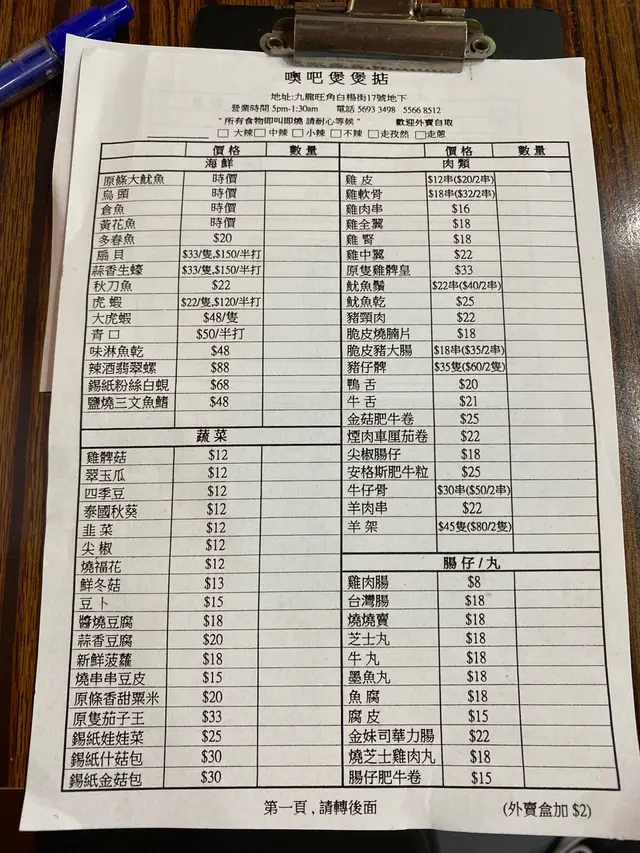 噢吧煲煲掂
地址:九龍旺角白楊街17號地下
營業時間 5pm-1:30am 電話 5693 3498 5566 8512
"所有食物即叫即燒 請耐心等候" 歡迎外賣自取
大辣 中辣 小辣 不辣 走孜然 走蔥
價格 數量
海鮮
原條大魷魚 時價
烏頭 時價
倉魚 時價
黃花魚 時價
多春魚 $20
扇貝 $33/隻,$150/半打
蒜香生蠔 $33/隻,$150/半打
秋刀魚 $22
虎蝦 $22/隻,$120/半打
大虎蝦 $48/隻
青口 $50/半打
味淋魚乾 $48
辣酒翡翠螺 $88
錫紙粉絲白蜆 $68
鹽燒三文魚鰭 $48
蔬菜
雞髀菇 $12
翠玉瓜 $12
四季豆 $12
泰國秋葵 $12
韭菜 $12
尖椒 $12
燒福花 $12
鮮冬菇 $13
豆卜 $15
醬燒豆腐 $18
蒜香豆腐 $20
新鮮菠蘿 $18
燒串串豆皮 $15
原條香甜粟米 $20
原隻茄子王 $33
錫紙娃娃菜 $25
錫紙什菇包 $30
錫紙金菇包 $30
價格 數量
肉類
雞皮 $12串($20/2串)
雞軟骨 $18串($32/2串)
雞肉串 $16
雞全翼 $18
雞腎 $18
雞中翼 $22
原隻雞髀皇 $33
魷魚鬚 $22串($40/2串)
魷魚乾 $25
豬頸肉 $22
脆皮燒腩片 $18
脆皮豬大腸 $18串($35/2串)
豬仔髀 $35隻($60/2隻)
鴨舌 $20
牛舌 $21
金菇肥牛卷 $25
煙肉車厘茄卷 $22
尖椒腸仔 $18
安格斯肥牛粒 $25
牛仔骨 $30串($50/2串)
羊肉串 $22
羊架 $45隻($80/2隻)
腸仔/丸
雞肉腸 $8
台灣腸 $18
燒燒賣 $18
芝士丸 $18
牛丸 $18
墨魚丸 $18
魚腐 $18
腐皮 $15
金妹司華力腸 $22
燒芝士雞肉丸 $18
腸仔肥牛卷 $15
第一頁,請轉後面 (外賣盒加 $2)